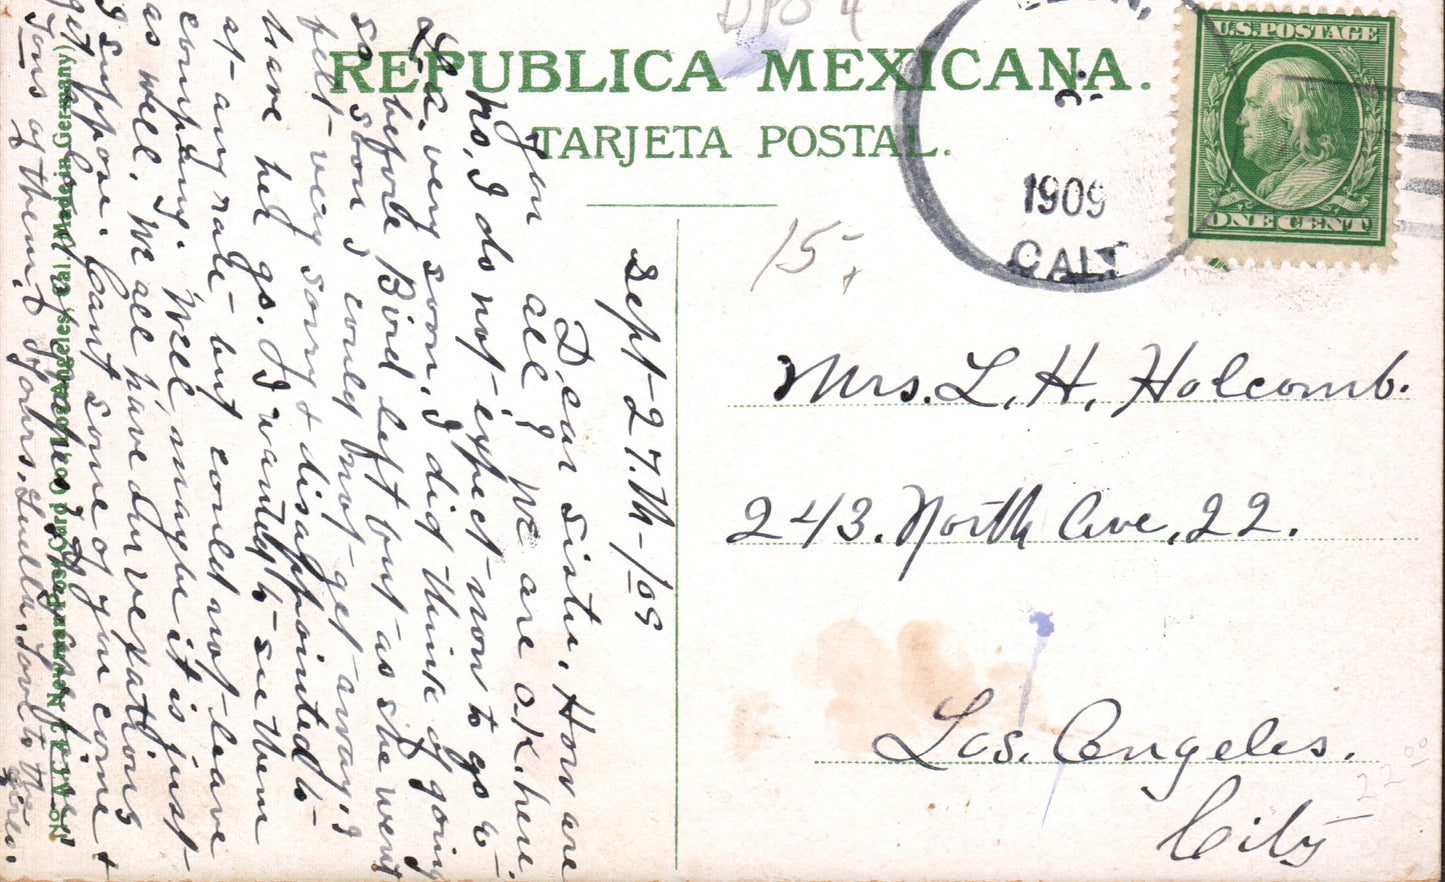 DPO 4
REPUBLICA MEXICANA.
TARJETA POSTAL.
U.S. POSTAGE
ONE CENT
1909
CALIF
15-
Mrs. L. H. Holcomb.
243. North Ave, 22.
Los. Angeles.
City
22 00
Sept-27.th-/09
Dear Sister, How are
you all? We are O.K. here.
No, I do not-expect-now to go to-
La. very soon, I did think of going
before Bird left but-as she went
so soon I could not-get-away. I
felt-very sorry & disappointed to-
have her go. I wanted to-see them
at-any rate-but could not-leave
company. Well maybe it is just-
as well. We all have our vexations
I suppose. Can't some of you come &
get some
Tons of them. Yours. Luella, Love to the
No. A. Newman Post Card Co., Los Angeles, Cal. (Made in Germany)